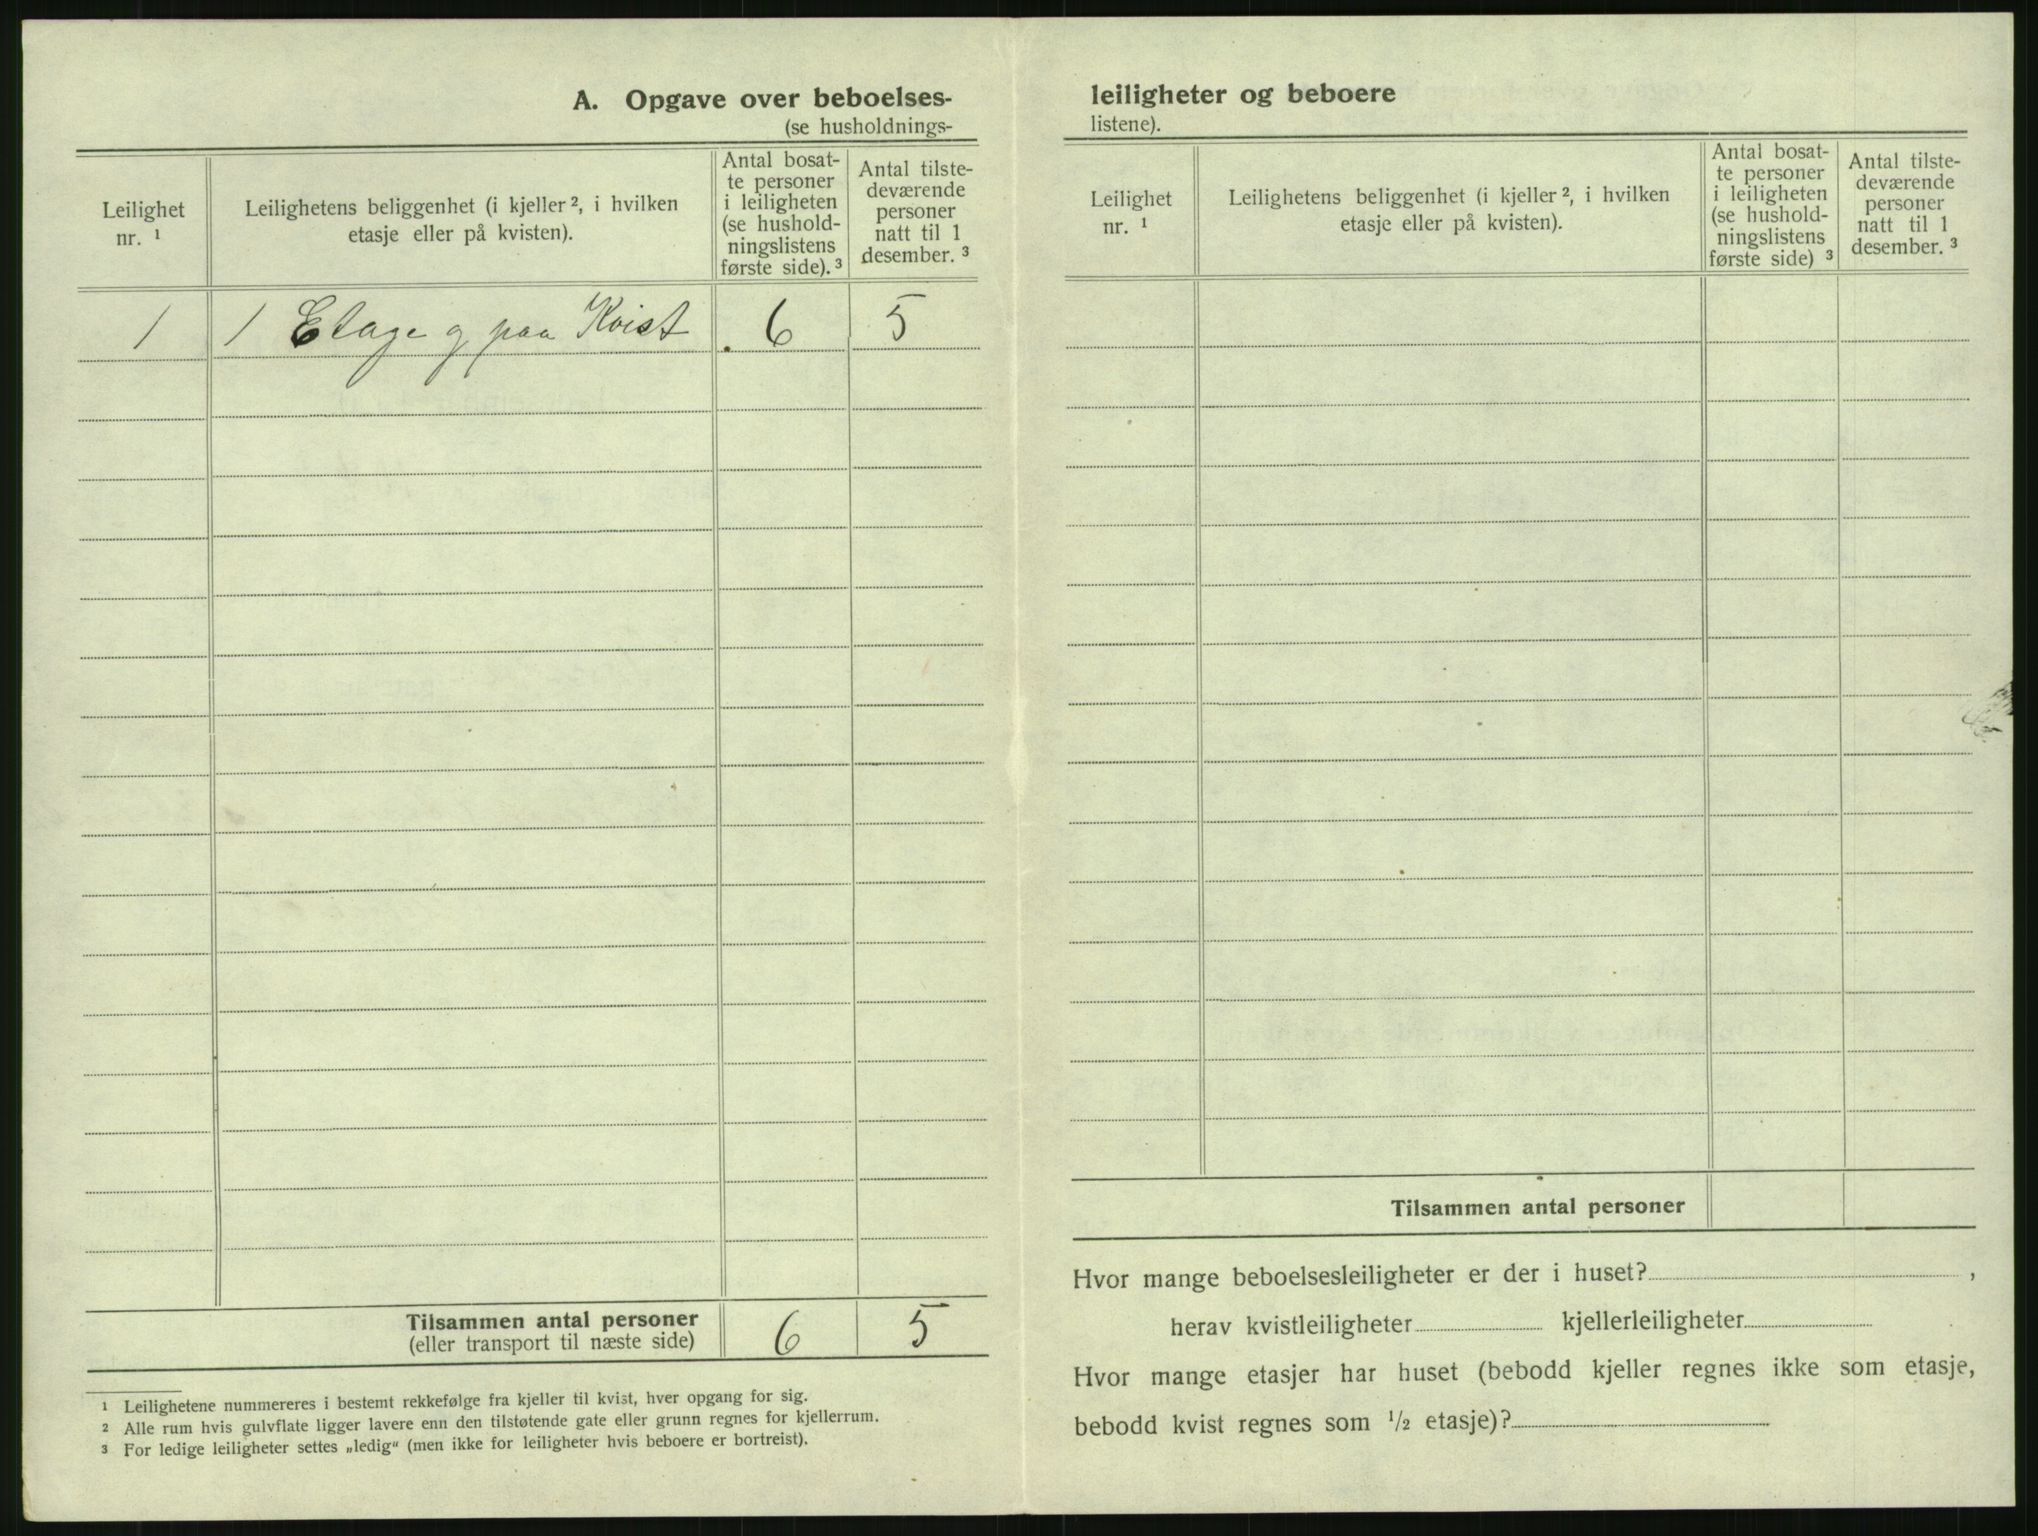 A. Opgave over beboelses-
(se husholdnings-
Leilighet
nr. ¹
Leilighetens beliggenhet (i kjeller ², i hvilken
etasje eller på kvisten).
Antal bosat-
te personer
i leiligheten
(se hushold-
ningslistens
første side). ³
Antal tilste-
deværende
personer
natt til 1
desember. ³
1 1 Etage og paa Kvist 6 5
Tilsammen antal personer 6 5
(eller transport til næste side)
¹ Leilighetene nummereres i bestemt rekkefølge fra kjeller til kvist, hver opgang for sig.
² Alle rum hvis gulvflate ligger lavere enn den tilstøtende gate eller grunn regnes for kjellerrum.
³ For ledige leiligheter settes „ledig“ (men ikke for leiligheter hvis beboere er bortreist).
leiligheter og beboere
listene).
Leilighet
nr. ¹
Leilighetens beliggenhet (i kjeller ², i hvilken
etasje eller på kvisten).
Antal bosat-
te personer
i leiligheten
(se hushold-
ningslistens
første side) ³
Antal tilste-
deværende
personer
natt til 1
desember. ³
Tilsammen antal personer
Hvor mange beboelsesleiligheter er der i huset? ,
herav kvistleiligheter kjellerleiligheter
Hvor mange etasjer har huset (bebodd kjeller regnes ikke som etasje,
bebodd kvist regnes som ½ etasje)?